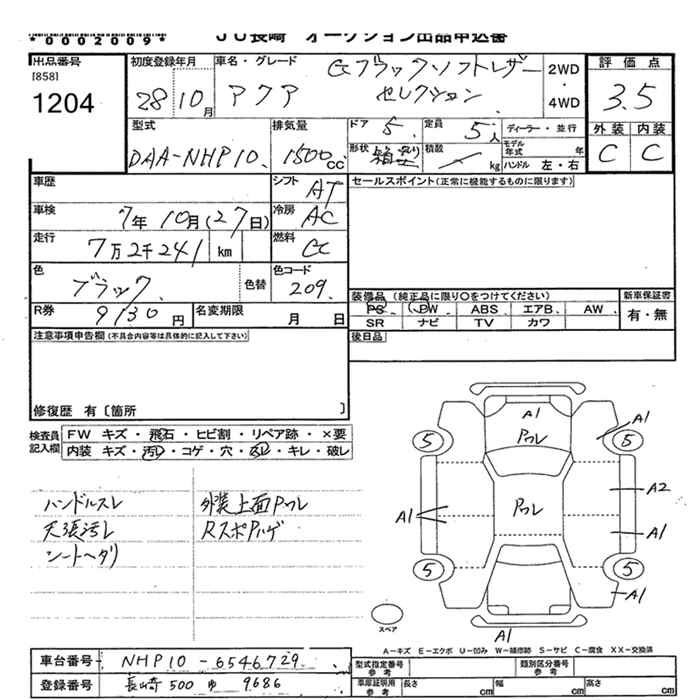 *0002009*
JU長崎 オークション出品申込書
出品番号
[858]
1204
初度登録年月
28年10月
車名・グレード
アクア
Gブラックソフトレザー
セレクション
2WD
・
4WD
評価点
3.5
外装 内装
C C
型式
DAA-NHP10
排気量
1500cc
ドア 5
定員 5人
形状
積載 kg
ディーラー・並行
モデル年式 年
ハンドル 左・右
車歴
シフト AT
車検 7年10月(27日)
冷房 AC
走行 7万2千241 km
燃料
色 ブラック
色替
色コード 209
R券 9130円
名変期限 月 日
セールスポイント(正常に機能するものに限ります)
装備品 (純正品に限り○をつけてください)
新車保証書
PS PW ABS エアB AW
有・無
SR ナビ TV カワ
後日品
注意事項申告欄(不具合内容等は具体的に記入して下さい)
修復歴 有〔箇所 〕
検査員記入欄
FW キズ・飛石・ヒビ割・リペア跡・×要
内装 キズ・汚レ・コゲ・穴・スレ・キレ・破レ
ハンドルスレ
天張汚レ
シートヘタリ
外装上面Pフレ
RスポPハゲ
A1
Pフレ
A1
5
5
A1
Pフレ
A2
A1
5
5
A1
A1
スペア
A-キズ E-エクボ U-凹み W-補修跡 S-サビ C-腐食 XX-交換済
車台番号 NHP10-6546729
登録番号 長崎 500 ゆ 9686
型式指定番号 参考
類別区分番号 参考
車庫証明用 参考
長さ cm
幅 cm
高さ cm